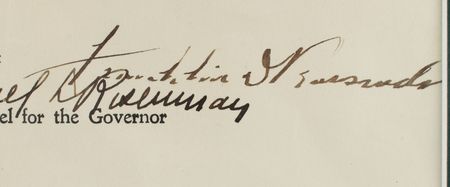 Franklin D Roosevelt
uel I Rosenman
el for the Governor